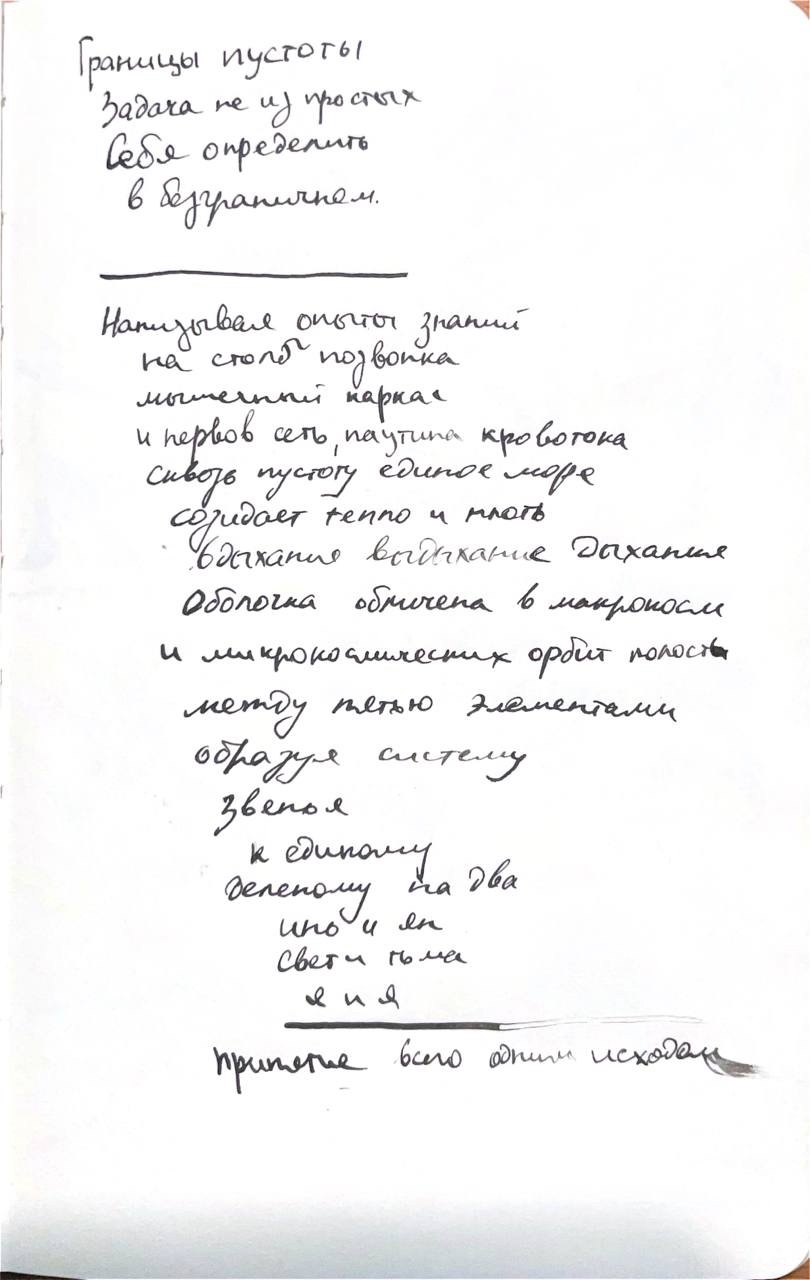 Границы пустоты
Задача не из простых
Себя определить
в безграничном.
Нанизывая опыты знаний
на столб позвонка
мышечный каркас
и нервов сеть, паутина кровотока
сквозь пустоту единое море
созидает тепло и плоть
вдыхание выдыхание дыхание
Оболочка обличена в макрокосм
и микрокосмических орбит полость
между пятью элементами
образуя систему
Звенья
к единому
деленому на два
инь и ян
свет и тьма
я и я
принятие всего одним исходом